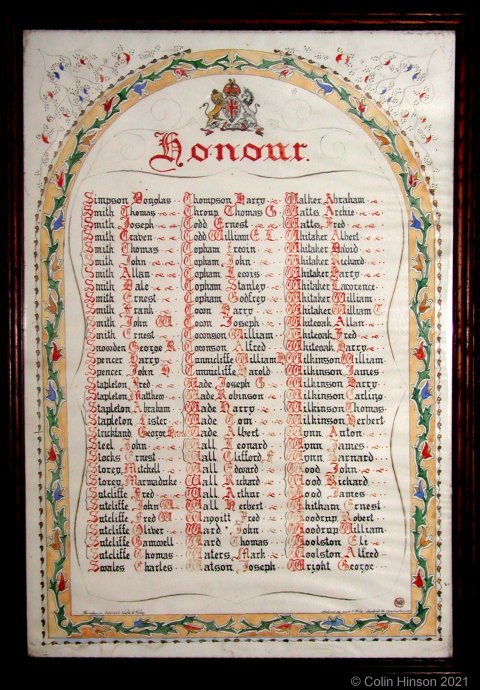 Honour.
Simpson Douglas
Smith Thomas
Smith Joseph
Smith Craven
Smith Thomas
Smith John
Smith Allan
Smith Dale
Smith Ernest
Smith Frank
Smith John W.
Smith Ernest
Snowden George R.
Spencer Harry
Spencer John H.
Stapleton Fred
Stapleton Matthew
Stapleton Abraham
Stapleton Lister
Strickland George
Steel John
Stocks Ernest
Storey Mitchell
Storey Marmaduke
Sutcliffe Fred
Sutcliffe John W.
Sutcliffe Fred W.
Sutcliffe Oliver
Sutcliffe Gamwell
Sutcliffe Thomas
Swales Charles
Thompson Harry
Throup Thomas G
Todd Ernest
Todd William E. L.
Topham Irwin
Topham John
Topham Lewis
Topham Stanley
Topham Godfrey
Town Harry
Town Joseph
Townson William
Townson Alfred
Tunnicliffe William H
Tunnicliffe Harold
Wade Joseph G
Wade Robinson
Wade Harry
Wade Tom
Wade Albert
Wall Leonard
Wall Clifford
Wall Edward
Wall Rickard
Wall Arthur
Wall Herbert
Fred
Ward John
Ward Thomas
Waters Mark
Watson Joseph
Walker Abraham
Watts Archie
Watts Fred
Whitaker Albert
Whitaker David
Whitaker Rickard
Whitaker Harry
Whitaker Lawrence
Whitaker William
Whitaker William E
Whiteoak Allan
Whiteoak Fred
Whiteoak Harry
Wilkinson William
Wilkinson James
Wilkinson Harry
Wilkinson Carling
Wilkinson Thomas
Wilkinson Herbert
Wynn Anton
Wynn James
Wynn Barnard
Wood John
Wood Rickard
Wood James
Whitham Ernest
Woodrup Robert
Woodrup William
Woolston Ely
Woolston Alfred
Wright George
© Colin Hinson 2021